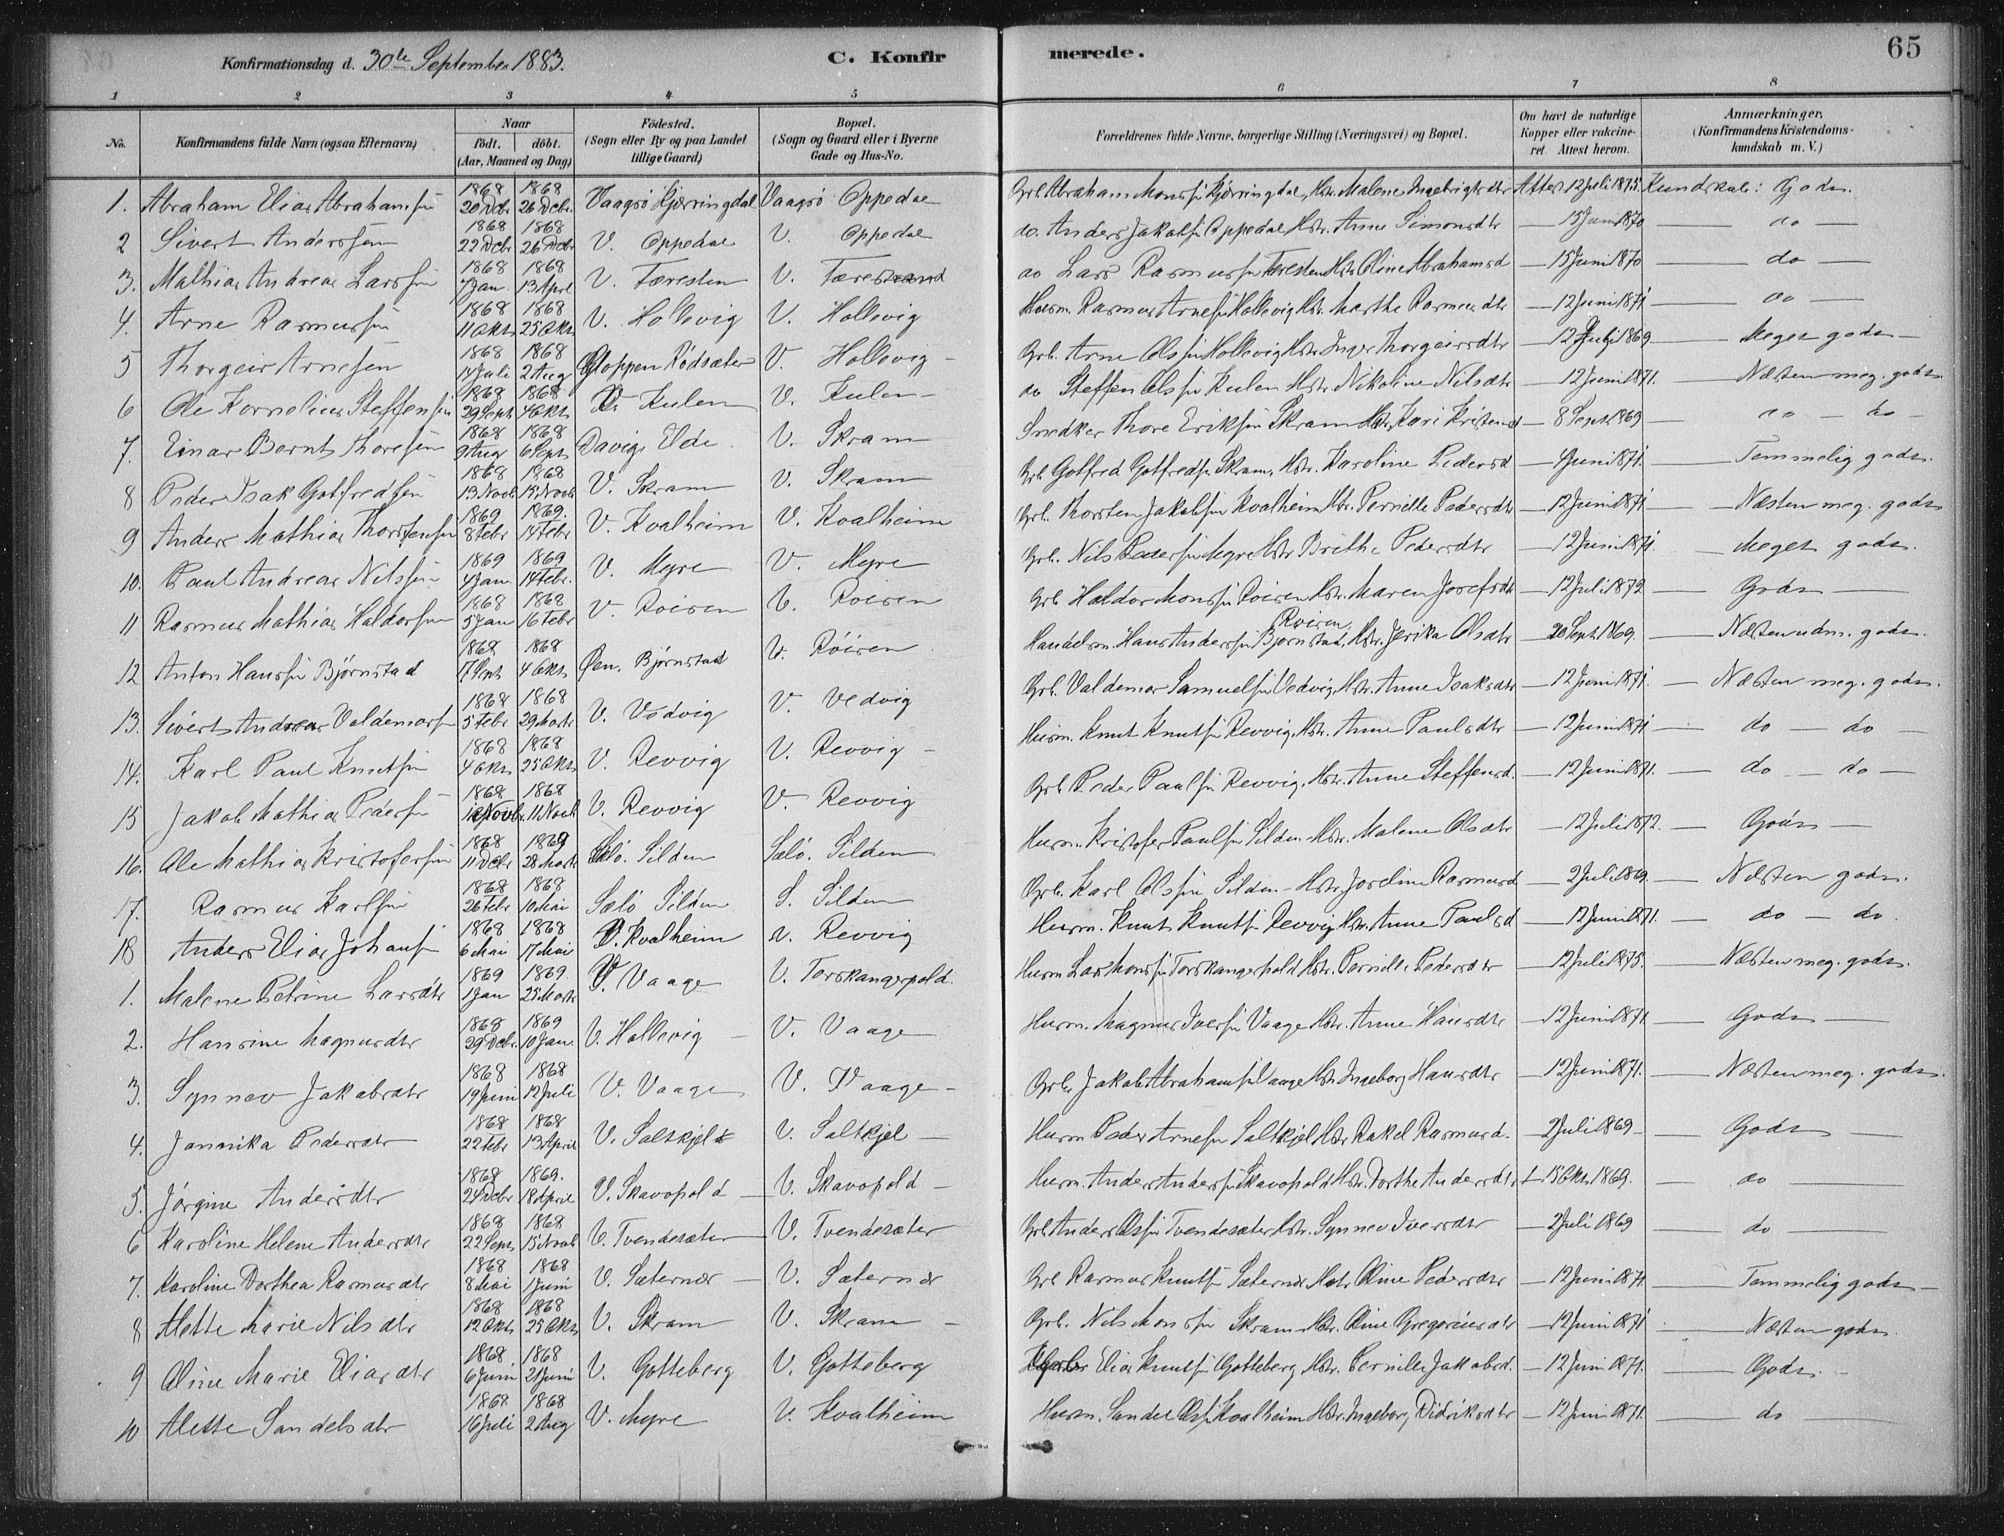 Konfirmationsdag d. 30te September 1883. C. Konfirmerede. 65
1 2 3 4 5 6 7 8
No. Konfirmandens fulde Navn (ogsaa Efternavn) Naar födt. döbt. (Aar, Maaned og Dag) Födested. (Sogn eller By og paa Landet tillige Gaard) Bopæl. (Sogn og Gaard eller i Byerne Gade og Hus-No. Forældrenes fulde Navne, borgerlige Stilling (Næringsvei) og Bopæl. Om havt de naturlige Kopper eller vakcineret. Attest herom. Anmærkninger. (Konfirmandens Kristendomskundskab m. V.)
1. Abraham Elias Abrahamsen 1868 20 Dcbr 1868 26 Dcbr. Vaagsö Gjærringdal Vaagsö Oppedal Grb. Abraham Monsen Gjærringdal, Hstr. Malene Ingebrigtsdtr Attest 12 Juli 1875 Kundskab: Godt.
2 Sivert Anderssen 1868 22 Dcbr 1868 26 Dcbr V. Oppedal V. Oppedal do. Anders Jakobsen Oppedal Hstr. Anne Simonsdtr — 15 Juni 1870 — do —
3. Mathias Andreas Larssen 1868 7 Jan. 1868 13 April V. Færesten V. Færestrand do Lars Rasmussen Færesten Hstr Oline Abrahamsd — 15 Juni 1870 — do —
4. Arne Rasmussen 1868 11 Okt. 1868 25 Okt. V. Hollevig V. Hollevig Husm. Rasmus Arnesen Hollevig Hstr. Marthe Rasmusdtr — 12 Juni 1871 — do —
5 Thorgeir Arnesen 1868 14 Juli 1868 2 Aug Gloppen Rödsæter V. Hollevig — Grb. Arne Olsen Hollevig Hstr. Inger Thorgeirsdtr — 12 Juli 1869 — Meget godt —
6 Ole Kornelius Steffensen 1868 29 Sept. 1868 4 Okt. V. Kulen V. Kulen — do Steffen Olsen Kulen Hstr. Nikoline Nilsdtr — 12 Juni 1871. — Næsten meg. godt.
7. Einar Bernt Thoresen 1868 9 Aug 1868 6 Sept. Davig, Elde. V. Skram Snedker Thore Eriksen Skram Hstr. Kari Kristensd — 8 Sept. 1869 — do — do —
8 Peder Isak Gotfredsen 1868 13 Novb. 1868 15 Novb. V. Skram V. Skram Grb. Gotfred Gotfredsen Skram, Hstr. Karoline Pedersd — 4 Juni 1871. — Temmelig godt.
9 Anders Mathias Thorstensen 1869 8 Febr 1869. 14 Febr V. Kvalheim V. Kvalheim Grb. Thorsten Jakobsen Kvalheim Hstr. Pernille Pedersdtr — 12 Juni 1871 — Næsten meg. godt
10. Paul Andreas Nilssen 1869 4 Jan. 1869 14 Febr. V. Myre V. Myre Grb. Nils Pedersen Myre Hstr Brithe Pedersdtr — 12 Juni 1871. — Meget godt.
11 Rasmus Mathias Haldorsen 1868 5 Jan 1868 16 Febr V. Röiren V. Röiren Grb Haldor Monsen Röiren Hstr. Maren Josefsdtr — 12 Juli 1872 — Godt —
12 Anton Hansen Björnstad 1868 17 Sept 1868 4 Okt. Öen, Björnstad V. Röiren Handelsm. Hans Andersen Björnstad, Röiren, Hstr. Jerika Olsdtr — 20 Sept. 1869. — Næsten udm. godt.
13. Sivert Andreas Valdemarsen 1868 5 Febr 1868 29 Marts V. Vedvig V. Vedvig Grb. Valdemar Samuelsen Vedvig Hstr. Anne Isaksdtr — 12 Juni 1871. — Næsten meg. godt.
14. Karl Paul Knutsen 1868 4 Okt. 1868 25 Okt. V. Revvig V. Revvig — Husm. Knut Knutsen Revvig Hstr. Anne Paulsdtr — 12 Juni 1871 — do — do —
15 Jakob Mathias Pedersen 1868 Novbr. 1868 11 Novb V. Revvig V. Revvig Grb. Peder Paulsen Revvig, Hstr. Anne Steffensd. — 12 Juni 1871. — do — do —
16. Ole Mathias Kristofersen 1868 11 Dcbr 1869 28 Marts Selö. Silden Selö. Silden Husm. Kristofer Paulsen Silden Hstr. Malene Olsdtr — 12 Juli 1872. — Godt —
17. Rasmus Karlsen 1868 26 Febr 1868 10 Mai Selö Silden S. Silden Grb. Karl Olsen Silden — Hstr. Jordine Rasmusd — 2 Juli 1869. — Næsten godt.
18 Anders Elias Johansen 1868 6 Mai 1868 17 Mai V. Kvalheim V. Revvig Husm. Knut Knutsen Revvig Hstr. Anne Paulsd — 12 Juni 1871. — do — do.
1. Malene Petrine Larsdtr 1869 1 Jan 1869. 25 Marts V. Vaage V. Torskangerpold. Husm Lars Monsen Torskangerpold Hstr. Pernille Pedersdtr — 12 Juli 1875. — Næsten meg. godt.
2. Hansine Magnusdtr 1868 29 Dcbr. 1869 10 Jan. V. Hollevig — V. Vaage Husm. Magnus Iversen Vaage Hstr. Anne Hansdtr — 12 Juni 1871. — Godt —
3. Synnev Jakobsdtr 1868 19 Juni 1868 12 Juli V. Vaage V. Vaage — Grb. Jakob Abrahamsen Vaage Hstr Ingeborg Hansdtr — 12 Juni 1871. — Næsten meg. godt.
4. Jannika Pedersdtr 1868 22 Febr 1868 13 April V. Saltkjel V. Saltkjel — Husm Peder Arnesen Saltkjel Hstr Rakel Rasmusd. — 2 Juli 1869 — Godt —
5. Jörgine Andersdtr 1868 24 Dcbr 1869. 18 April V. Skavøpold — V. Skavøpold — Husm. Anders Andersen Skavøpold Hstr. Dorthe Andersdtr — 15 Okt. 1869. — do —
6 Karoline Helene Andersdtr 1868 22 Sept. 1868 15 Novb V. Tvendesæter — V. Tvendesæter Grb Anders Olsen Tvendesæter Hstr. Synnev Iversdtr — 2 Juli 1869 — do —
7. Karoline Dorthea Rasmusdtr 1868 8 Mai 1868 1 Juni V. Sæternær — V. Sæternær Grb Rasmus Knutsen Sæternær Hstr. Oline Pedersdtr — 12 Juni 1871 — Temmelig godt —
8 Alette Marie Nilsdtr 1868 12 Okt. 1868 25 Okt. V. Skram V. Skram — Grb. Nils Monsen Skram Hstr. Oline Gregoriusdtr — 12 Juni 1871 — Næsten godt.
9 Oline Marie Eliasdtr 1868 6 Juni 1868 21 Juni V. Gotteberg V. Gotteberg Elias Knutsen Gotteberg Hstr. Pernille Jakobsd. — 12 Juni 1871. — Godt. —
10 Alette Sandelsdtr 1868 16 Juli 1868 2 Aug V. Myre V. Kvalheim Husm. Sandel Olsen Kvalheim Hstr. Ingeborg Didriksdtr — 12 Juni 1871. — do